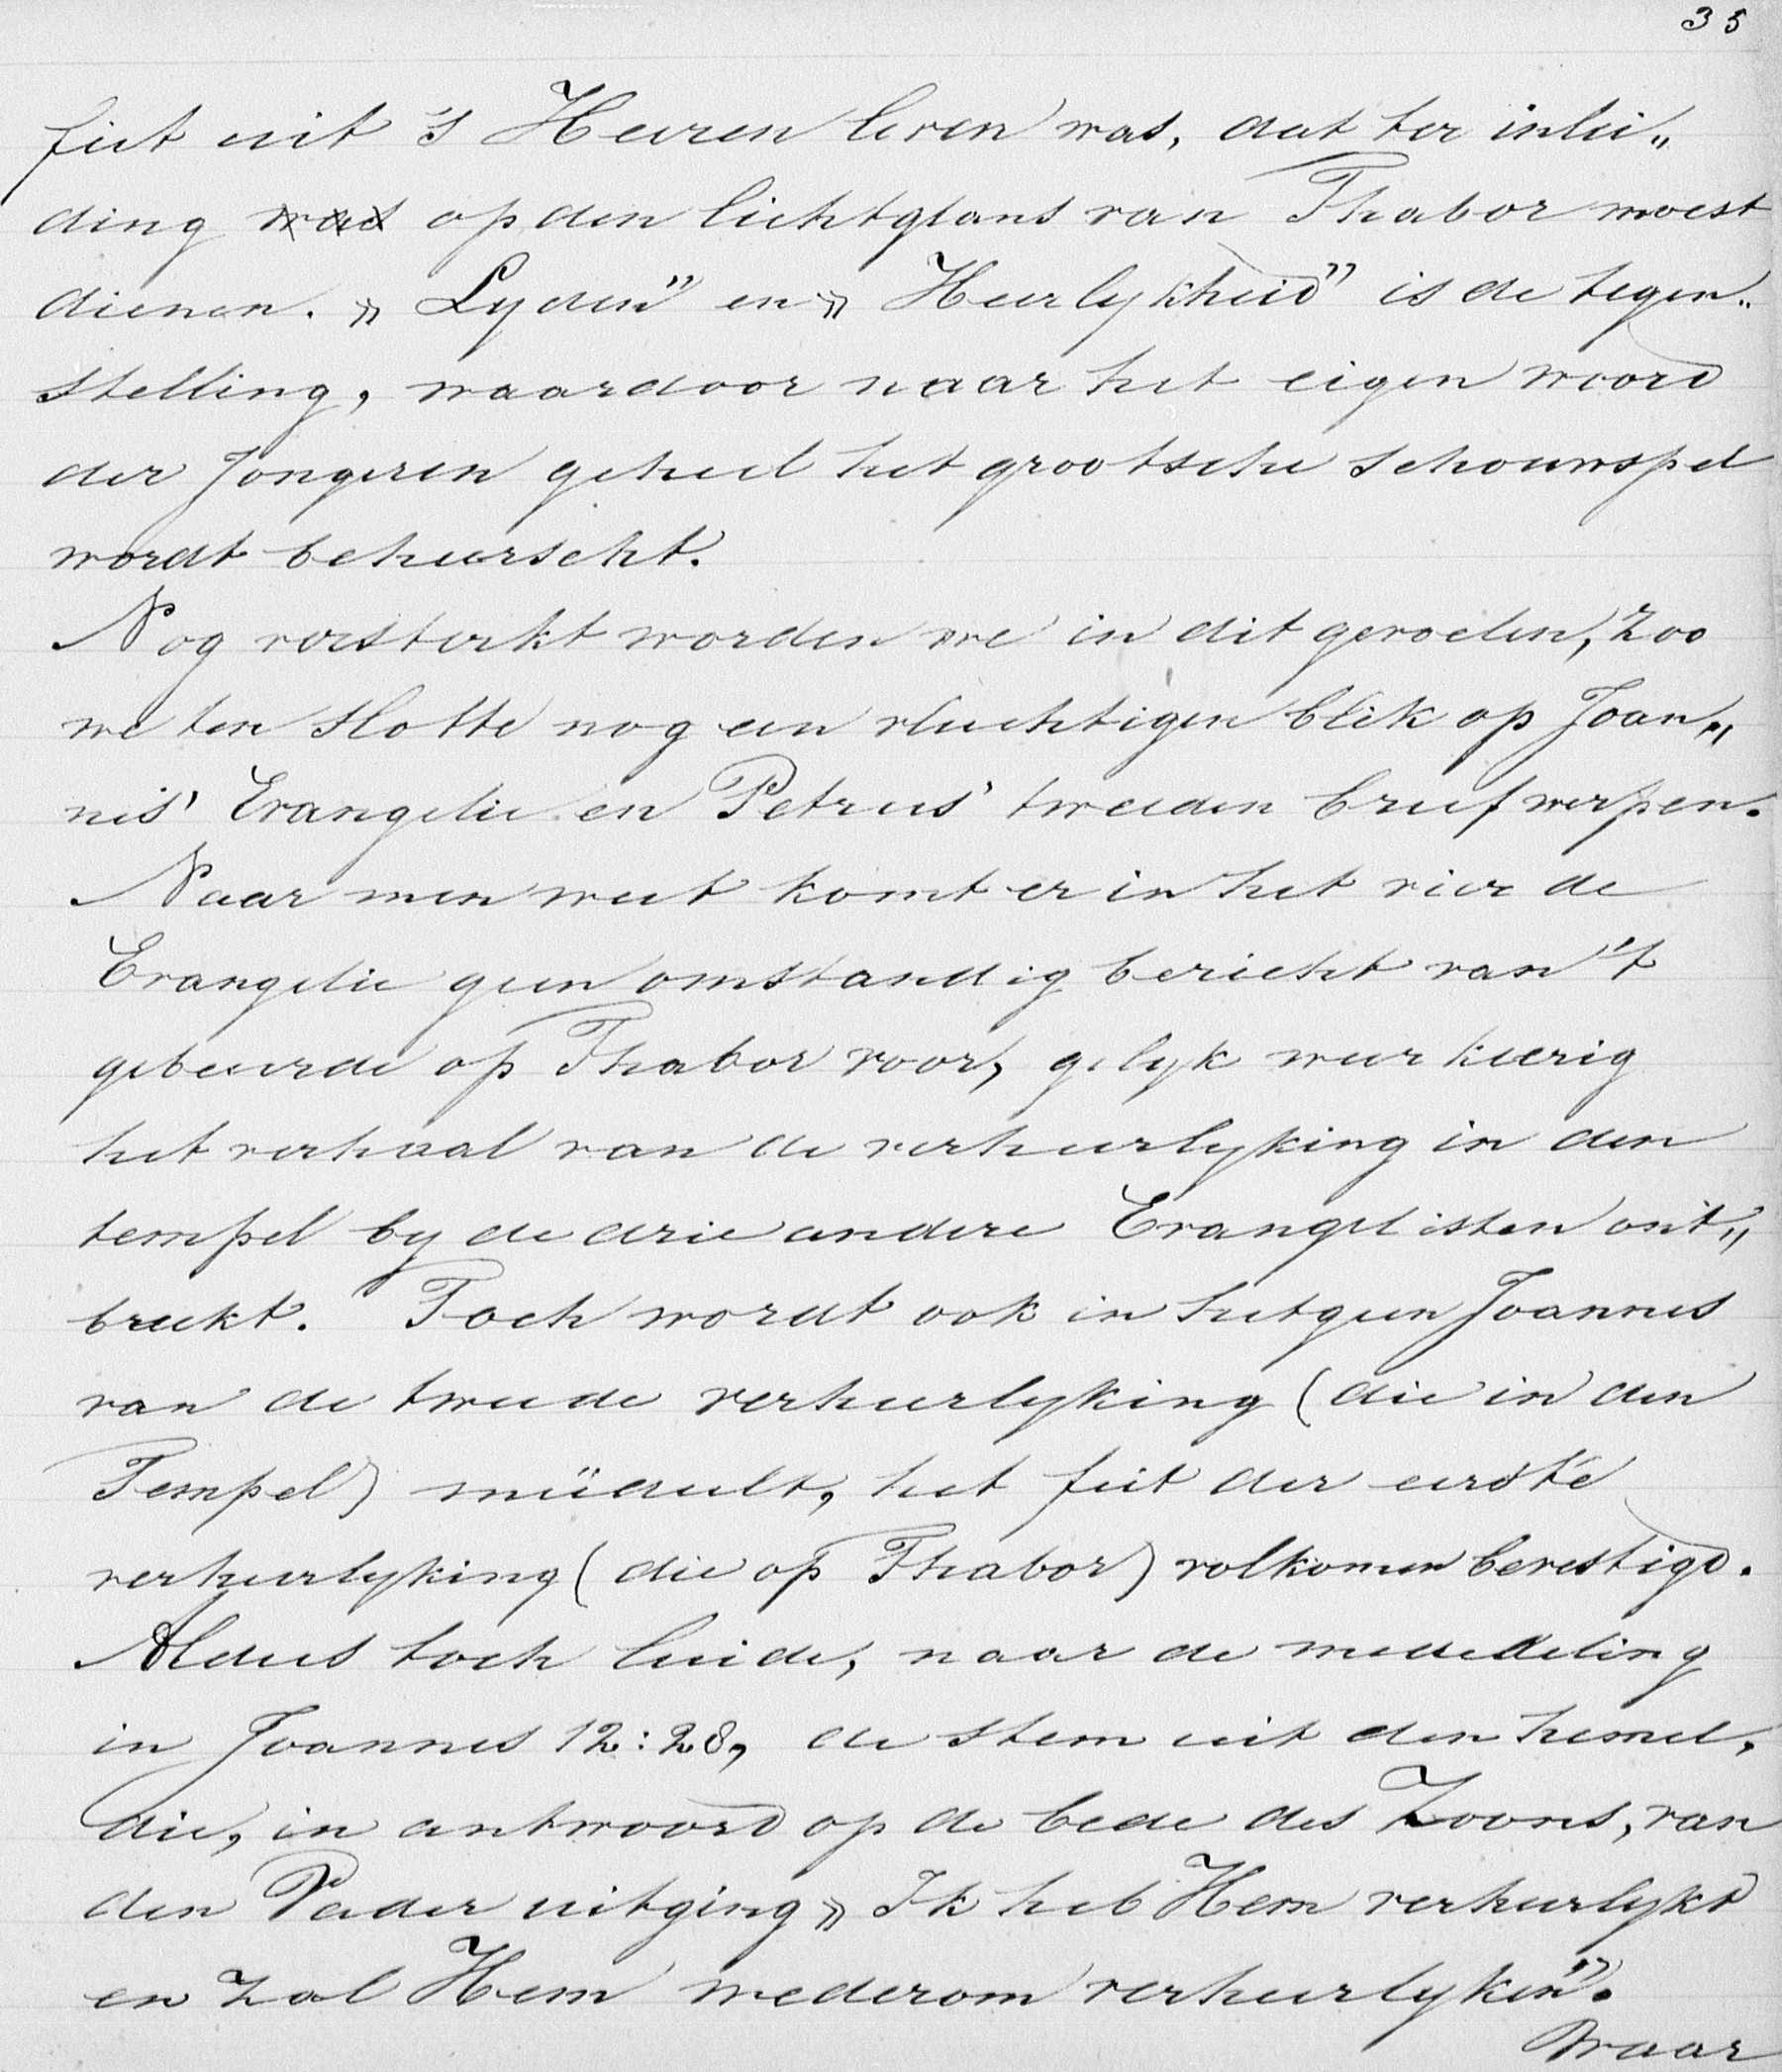 35
feit uit 's Heeren leven was, dat ter inlei„
ding was op den lichtglans van Thabor moest
dienen. „Lyden” en „Heerlykheid” is de tegen„
stelling, waardoor naar het eigen woord
der Jongeren geheel het grootsche schouwspel
wordt beheerscht.
Nog versterkt worden we in dit gevoelen, zoo
we ten slotte nog een vluchtigen blik op Joan„
nis' Evangelie en Petrus' tweeden brief werpen.
Naar men weet komt er in het vierde
Evangelie geen omstandig bericht van 't
gebeurde op Thabor voor, gelyk weerkeerig
het verhaal van de verheerlyking in den
tempel by de drie andere Evangelisten ont„
breekt. Toch wordt ook in hetgeen Joannes
van de tweede verheerlyking (die in den
Tempel) meêdeelt, het feit der eerste
verheerlyking (die op Thabor) volkomen bevestigd.
Aldus toch luide, naar de mededeling
in Joannes 12:28, de stem uit den hemel,
die, in antwoord op de bede des Zoons, van
den Vader uitging „Ik heb Hem verheerlykt
en zal Hem wederom verheerlyken”.
Waar